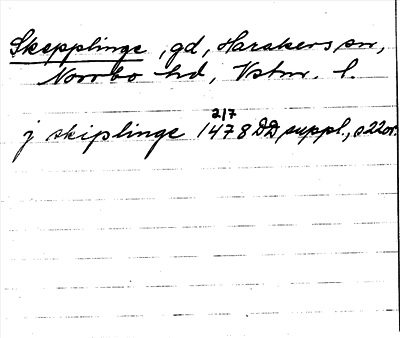 Skepplinge, gd, Harakers sn,
Norrbo hd, Vstm. l.
2/7
j skiplinge 1478 DD suppl., s 220r.